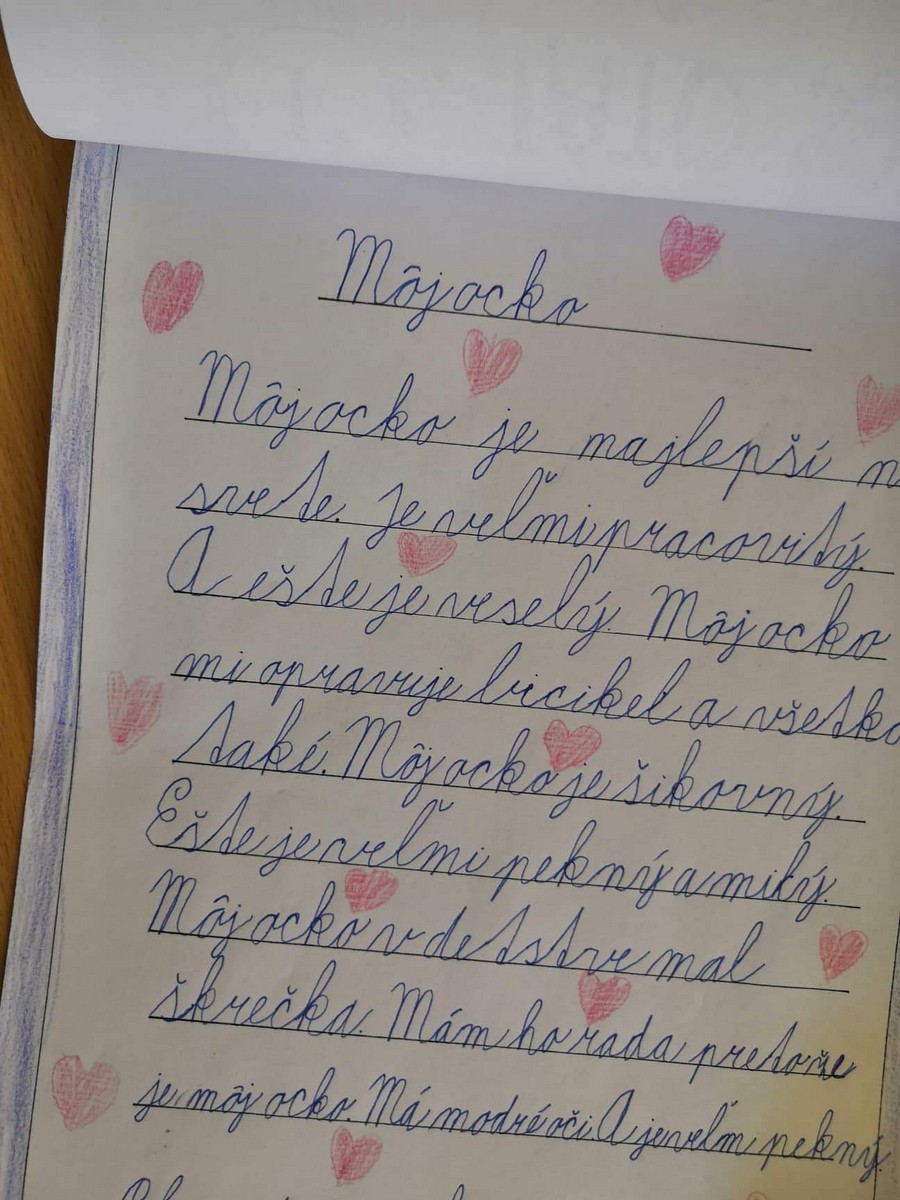 Môj ocko
Môj ocko je majlepší n
svete. Je veľmi pracovitý.
A ešte je veselý. Môj ocko
mi opravuje bicikel a všetko
také. Môj ocko je šikovný.
Ešte je veľmi pekný a milý.
Môj ocko v detstve mal
škrečka. Mám ho rada pretože
je môj ocko. Má modré oči. A je veľm pekný.